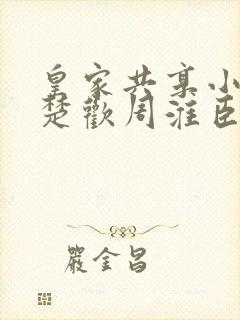 皇家共享小
楚歡周淮臣
嚴金昌